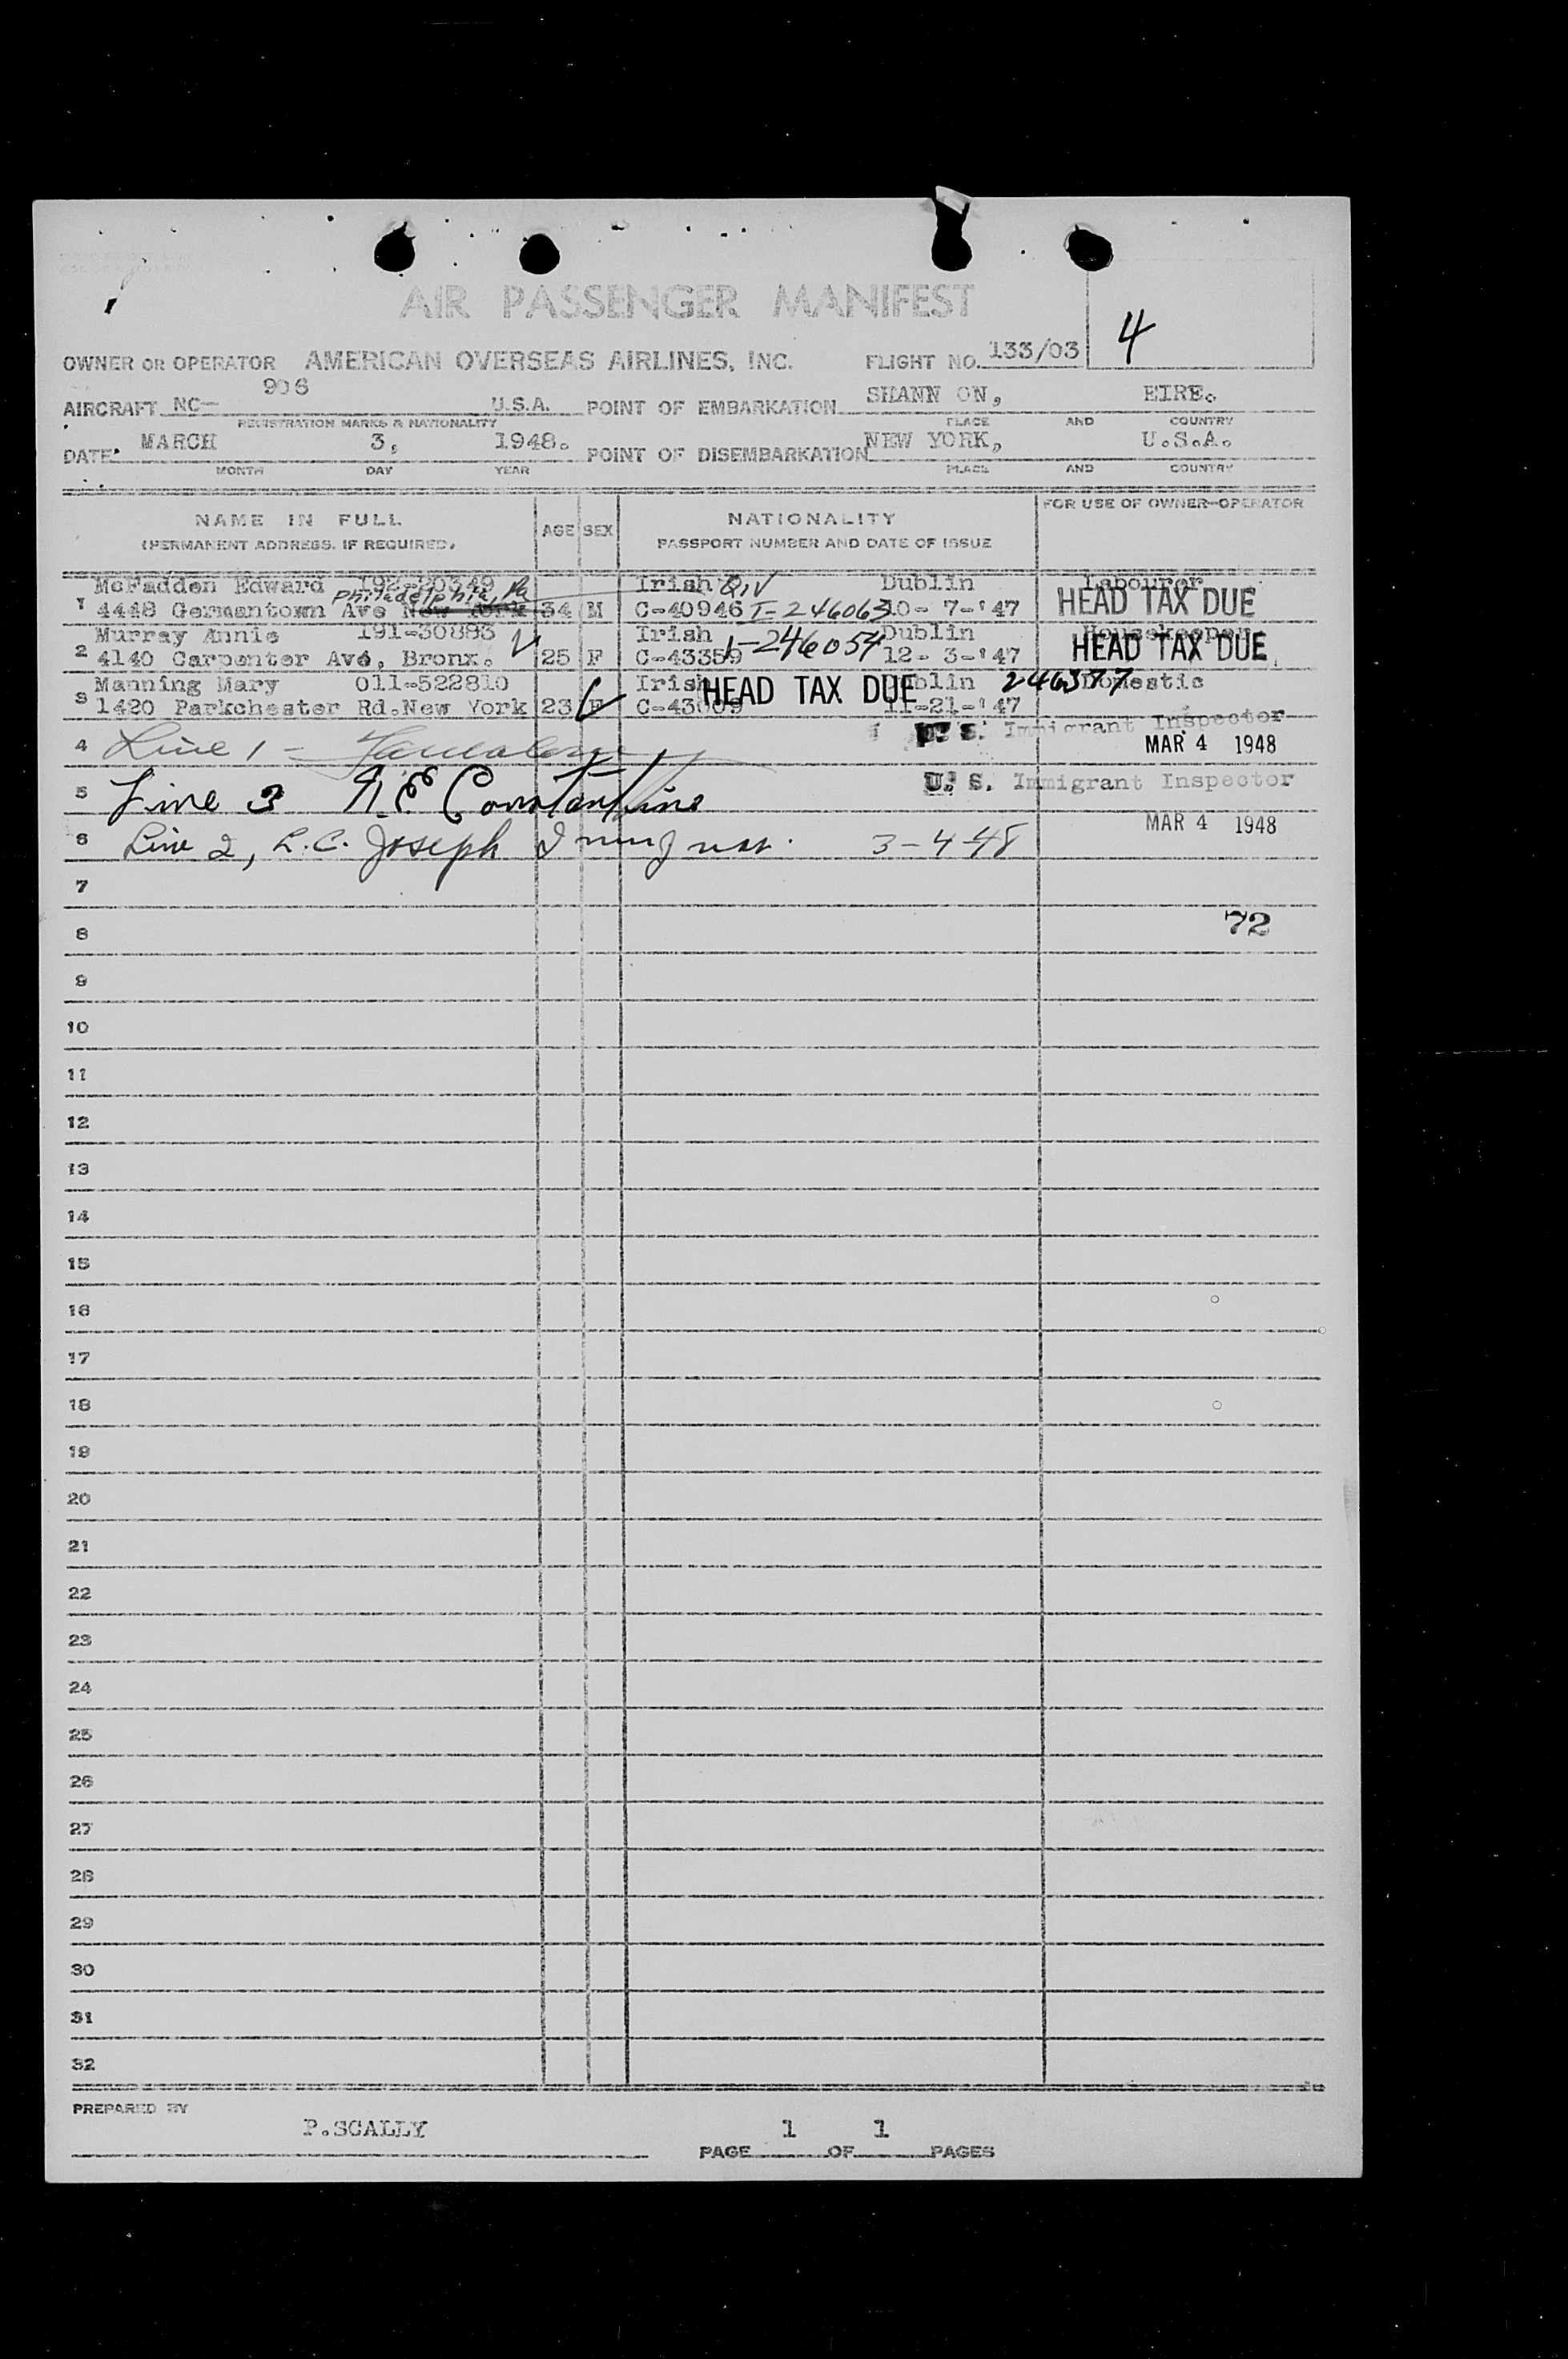 AIR PASSENGER MANIFEST
4
OWNER OR OPERATOR AMERICAN OVERSEAS AIRLINES, INC. FLIGHT NO. 133/03
AIRCRAFT NC- 906 U.S.A. POINT OF EMBARKATION SHANN ON, EIRE.
REGISTRATION MARKS & NATIONALITY PLACE AND COUNTRY
DATE MARCH 3, 1948. POINT OF DISEMBARKATION NEW YORK, U.S.A.
MONTH DAY YEAR PLACE AND COUNTRY
NAME IN FULL AGE SEX NATIONALITY FOR USE OF OWNER-OPERATOR
(PERMANENT ADDRESS, IF REQUIRED) PASSPORT NUMBER AND DATE OF ISSUE
McFadden Edward 192-20349 Irish QIV Dublin Labourer
Philadelphia, Pa
1 4448 Germantown Ave New York 34 M C-40946 I-246063 10- 7-'47 HEAD TAX DUE
Murray Annie 191-30893 Irish Dublin Housekeeper
2 4140 Carpenter Ave, Bronx. 25 F C-43359 I-246054 12- 3-'47 HEAD TAX DUE
Manning Mary 011-522810 Irish HEAD TAX DUE Dublin 246377 Domestic
3 1420 Parkchester Rd.New York 23 F C-43009 11-21-'47
U. S. Immigrant Inspector
4 Line 1 - MAR 4 1948
U. S. Immigrant Inspector
5 Line 3 N.E Constantine
MAR 4 1948
6 Line 2, L.C. Joseph 3-4-48
7
8 72
9
10
11
12
13
14
15
16
17
18
19
20
21
22
23
24
25
26
27
28
29
30
31
32
PREPARED BY
P.SCALLY
PAGE 1 OF 1 PAGES